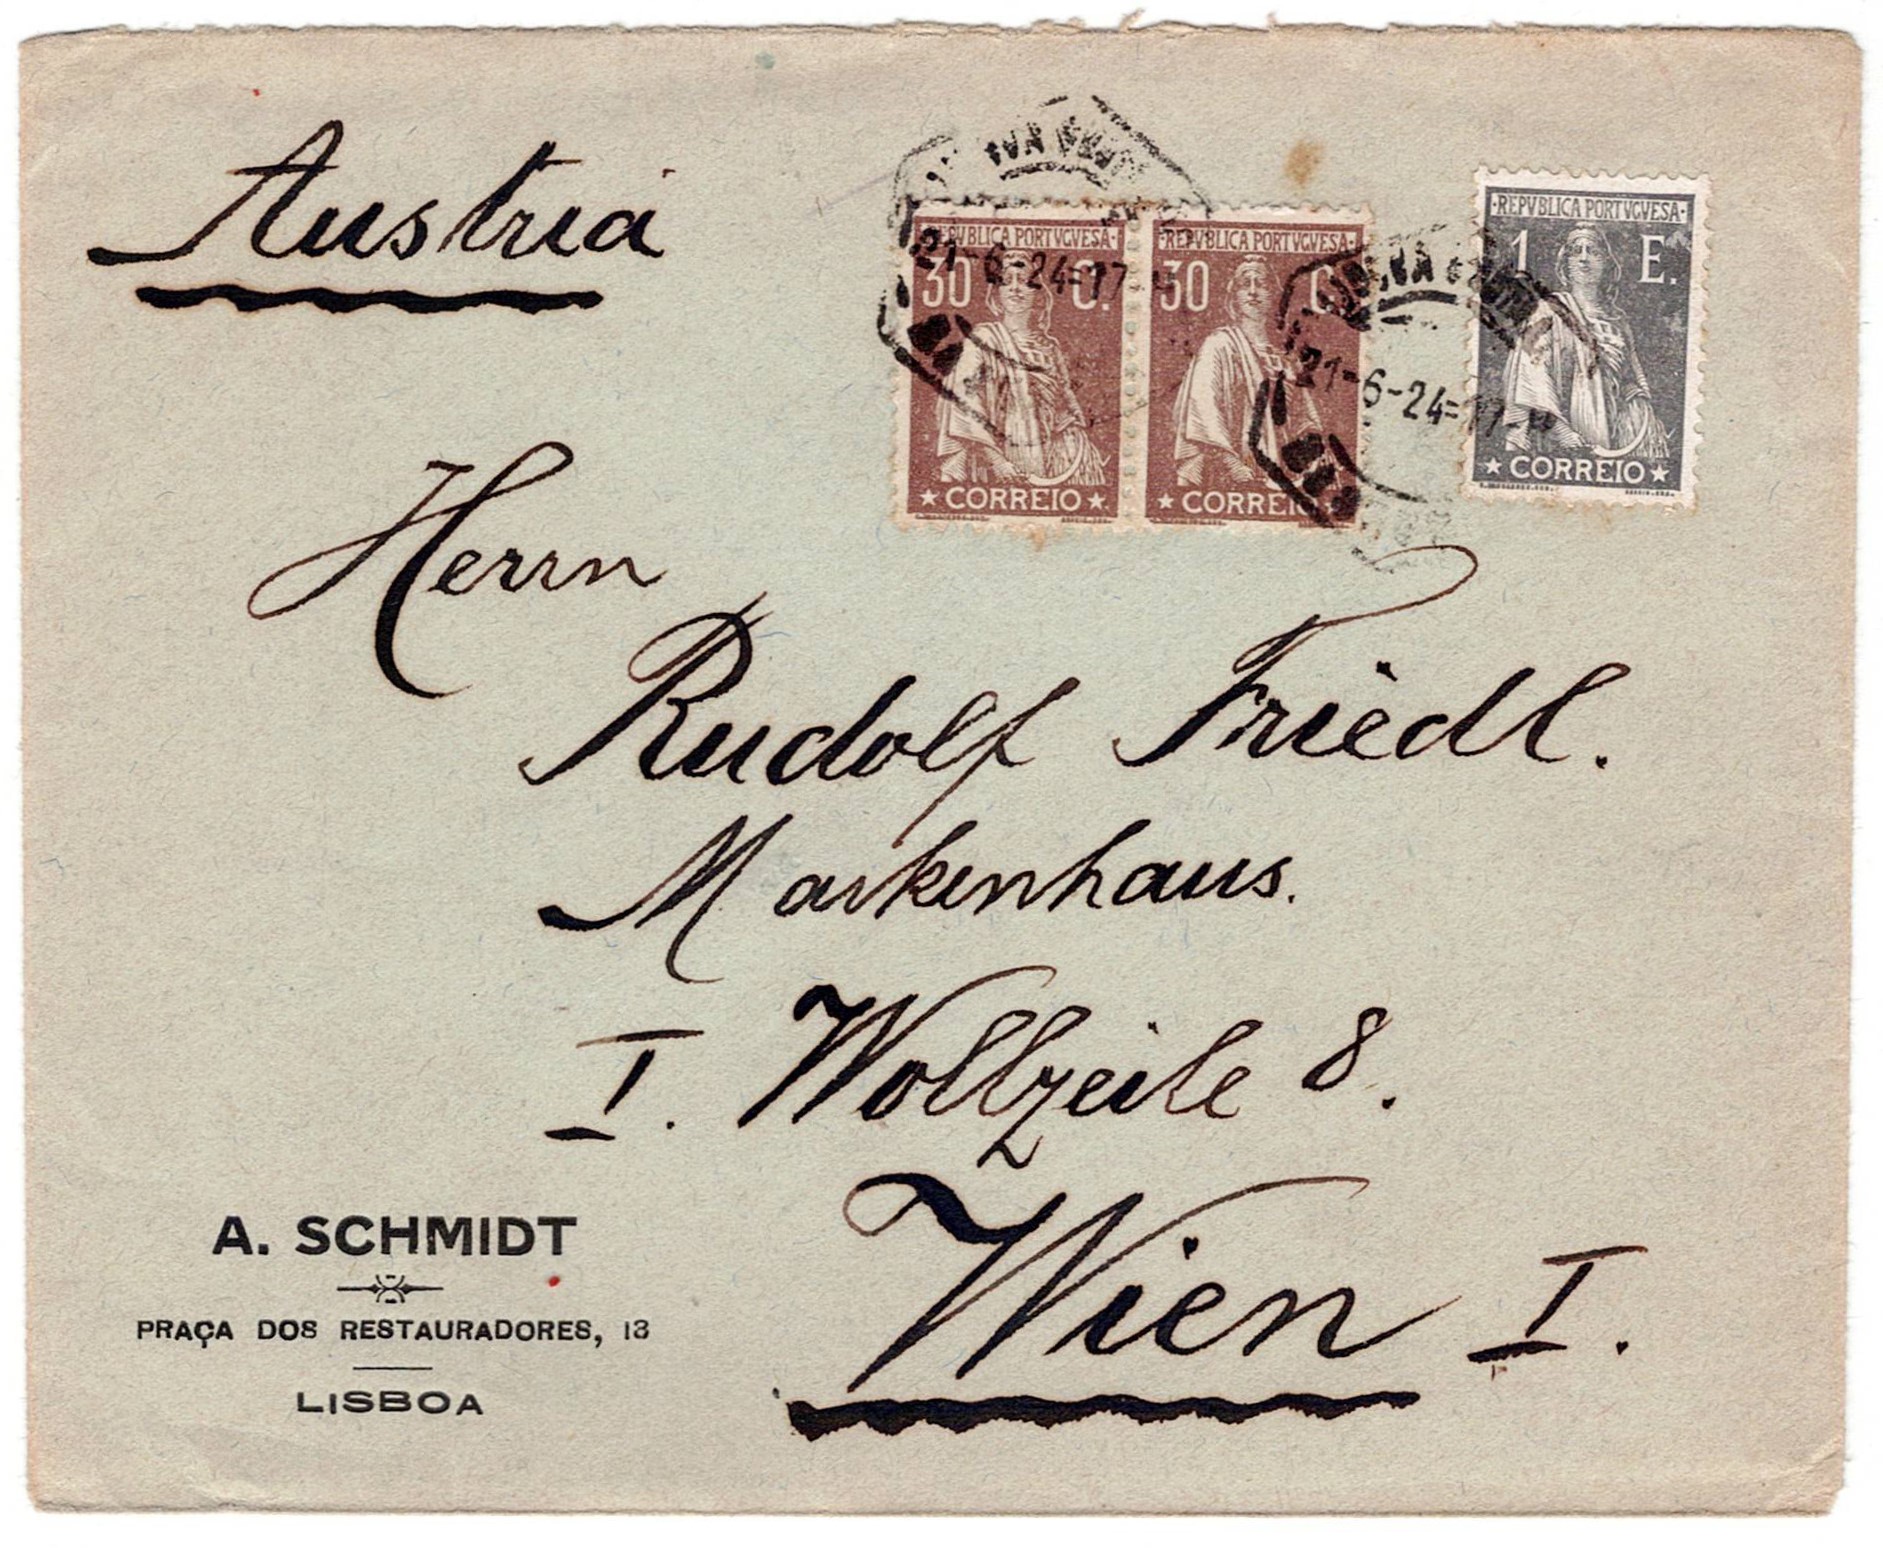 Austria
21-6-24=17
REPVBLICA PORTVGVESA
30 C.
CORREIO
REPVBLICA PORTVGVESA
30 C.
CORREIO
21-6-24=17
REPVBLICA PORTVGVESA
1 E.
CORREIO
Herrn
Rudolf Friedl.
Markenhaus.
I. Wollzeile 8.
Wien I.
A. SCHMIDT
PRAÇA DOS RESTAURADORES, 13
LISBOA